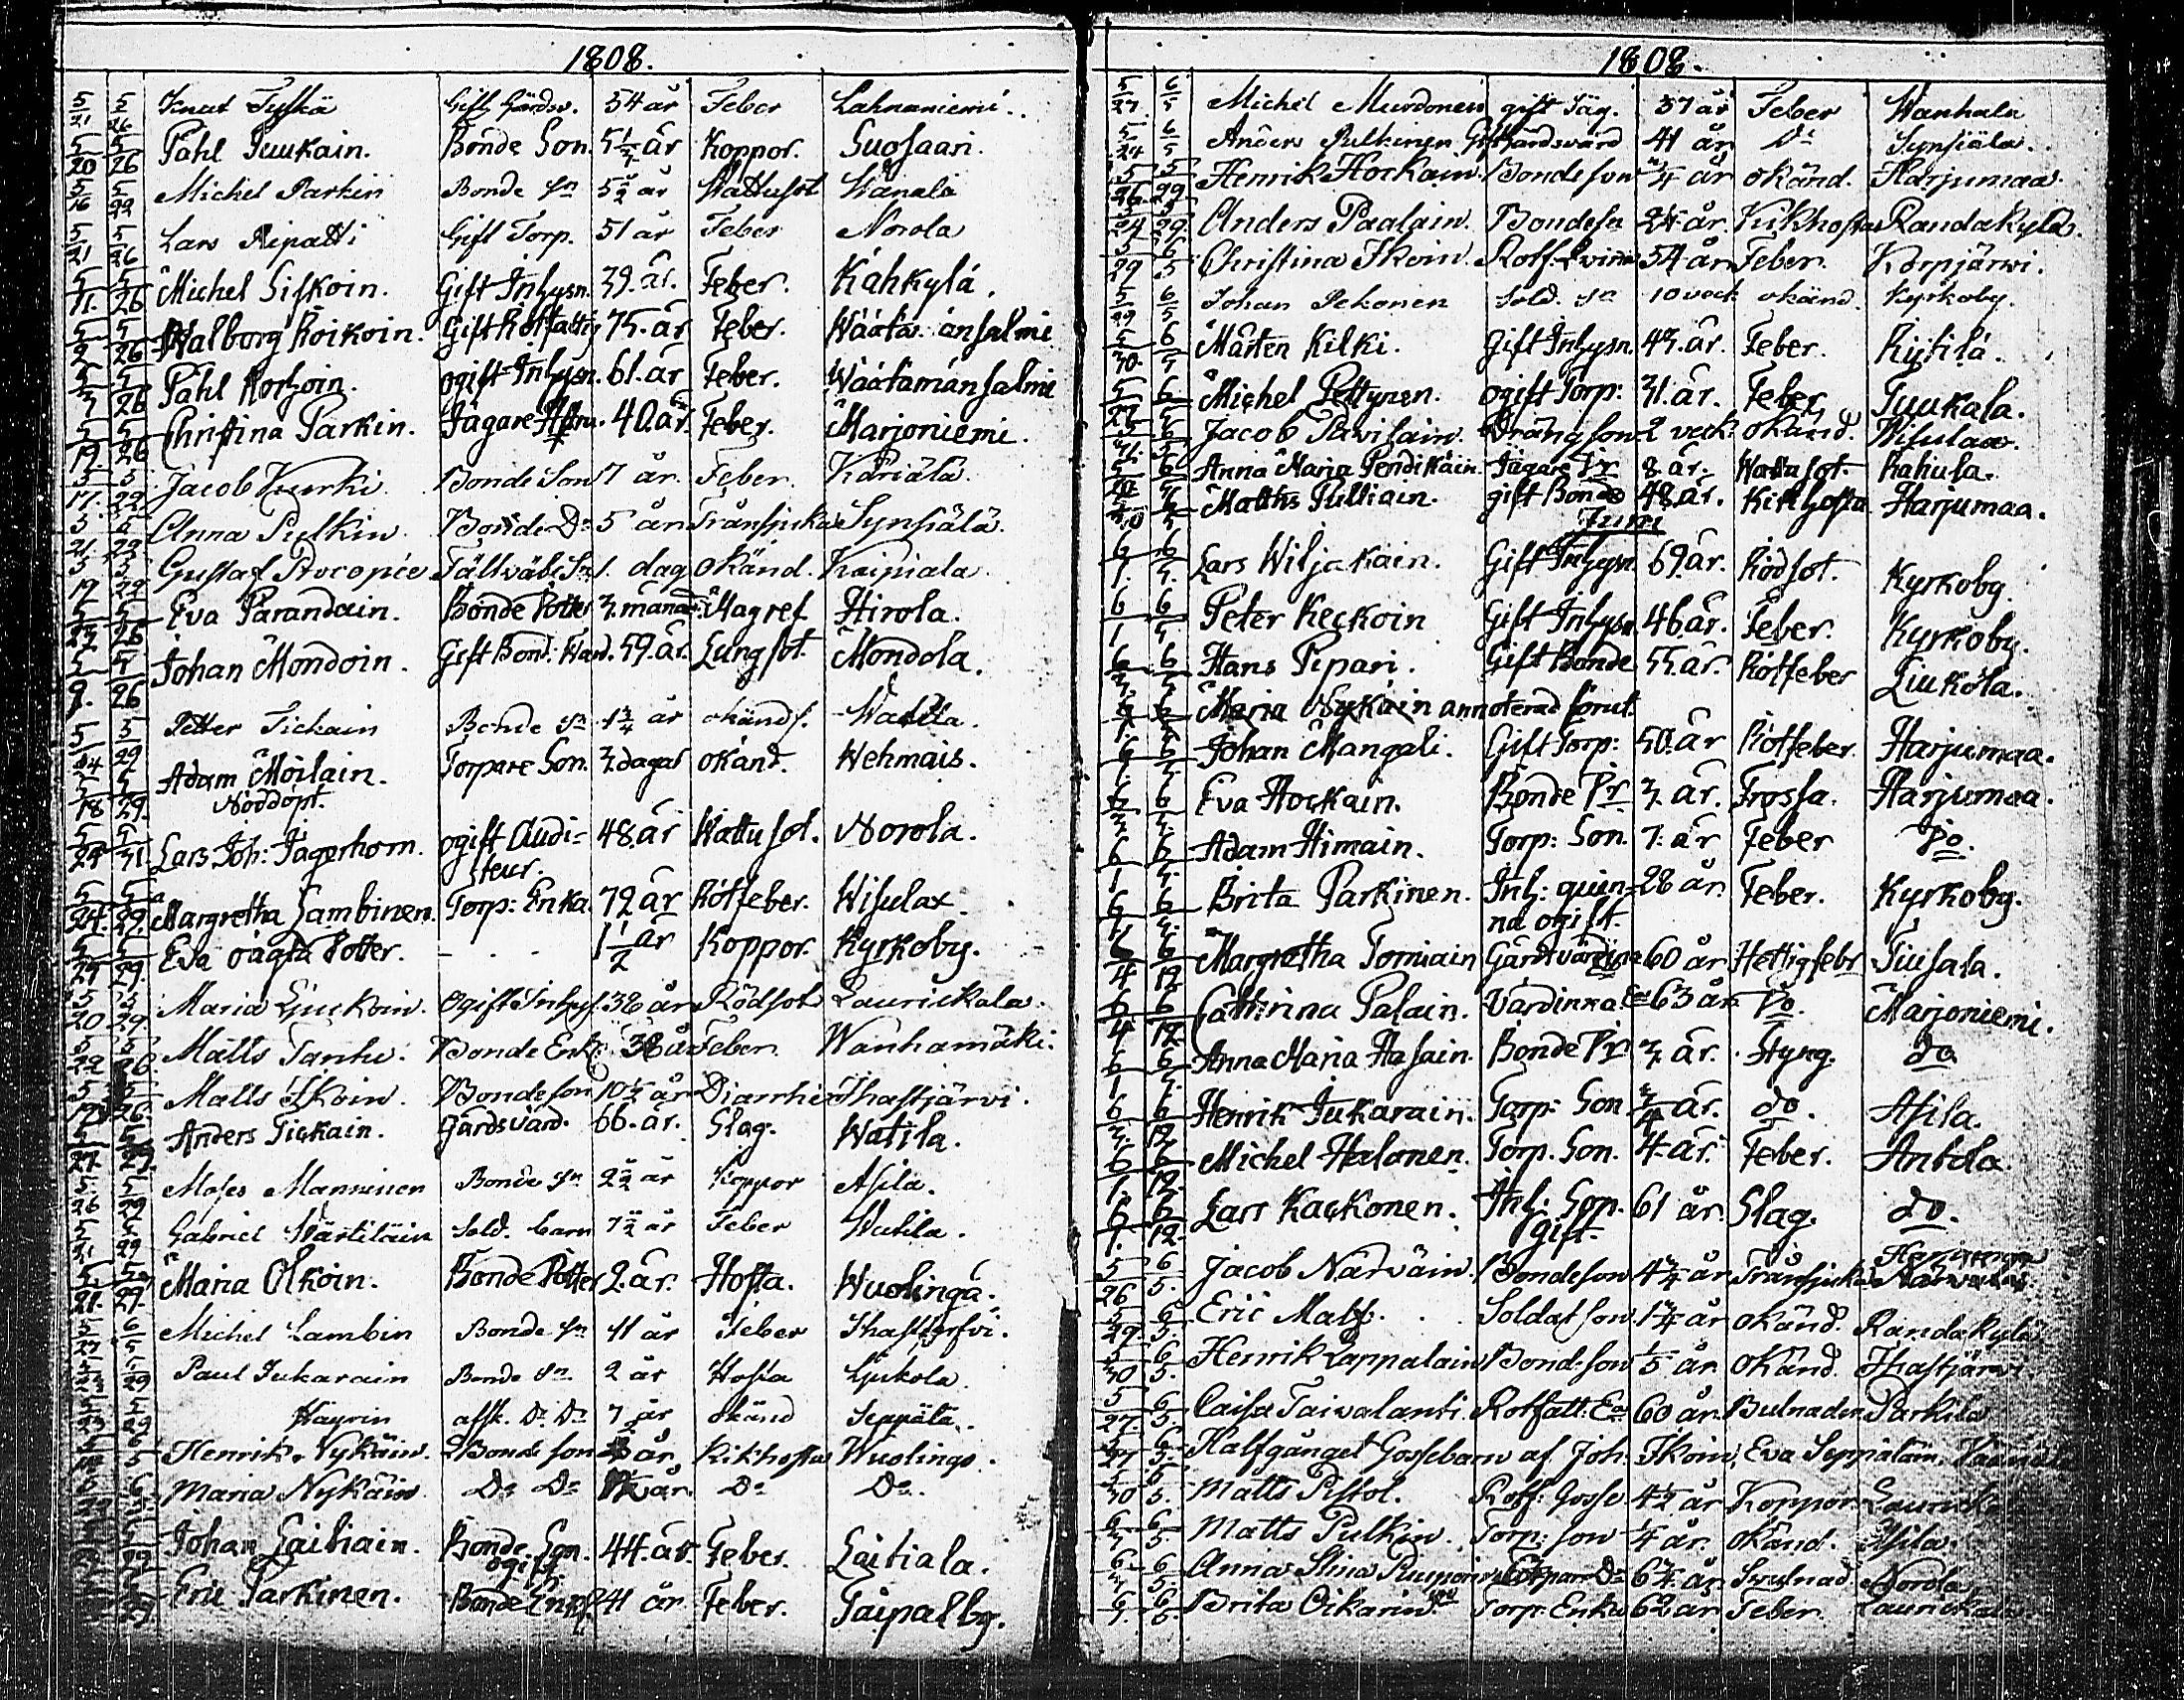 1808.
5/21 5/26 Knut Tyskä Gift Gårdsv. 54 år Feber Lahnaniemi.
5/20 5/26 Påhl Puukain. Bonde Son. år Koppor. Suosaari.
5/16 5/22 Michel Parkin Bonde Sn år Wattusot Wanala
5/21 5/26 Lars Ripatti Gift Torp. 51 år Feber Norola
5/11. 5/26 Michel Siskoin. Gift Inhysn. 39. år. Feber. Kähkylä.
5/9 5/26 Walborg Roikoin. Gift Rotfattig 75. år Feber. Wäätämänsalmi
5/7 5/26 Påhl Korhoin. ogift Inhysn. 61. år Feber. Wäätämänsalmi
5/19 5/26 Christina Parkin. Jägare 40. år. Feber. Marjoniemi.
5/17. 5/29. Jacob Kurki Bonde Son 7 år. Feber. Kariala.
5/21. 5/29. Anna Pulkin Bonde Dr 5 år Transjuka Synsiälä.
5/19 5/29 Gustaf Procopée Fältväb: Sn 1. dag okänd. Kaipiala.
5/23 5/26 Eva Parandain. Bonde Dotter 3. månad: Magref Hirola.
5/9. 5/26 Johan Mondoin. Gift Bond: Wärd. 59. år. Lungsot Mondola.
5/24 5/29 Petter Tickain Bonde Sn år okänds. Watila.
5/18 5/29. Adam Moilain. Torpare Son. 3. dagar okänd. Wehmais.
Nöddöpt.
5/24 5/31. Lars Joh: Jägerhorn. ogift Audi= 48. år Wattusot. Norola.
teur.
5/24. 5/29. Margretha Lambinen. Torp: Enka. 72 år Rötfeber. Wisulax
5/29 5/29. Eva oägta Dotter. - - - 1 1/2 år Koppor. Kyrkoby.
5/20 5/29. Maria Liukoin. Ogift Inhys. 36 år Rödsot Laurickala.
5/22 5/26. Matts Tanhu. Bonde Enkl. 38 år Feber. Wanhamäki.
5/19 5/26. Matts Ikoin. Bondeson 10 1/2 år Diarrhé Ihastjärvi.
5/27. 5/29. Anders Tickain. Gårdsvärd. 66. år. Slag. Watila.
5/26 5/29 Moses Manninen Bonde Sn år Koppor Asila.
5/21 5/29 Gabriel Wärtiläin Sold. barn år Feber Watila.
5/21. 5/29. Maria Olkoin. Bonde Dotter 2. år. Hosta. Wuolinga.
5/27 6/5 Michel Lambin Bonde Sn 11 år Feber Ihastjerfvi.
5/23 5/29 Paul Jukarain Bonde Sn. 2 år Hosta Liukola.
5/23 5/29 Häyrin afsk. Dr. Dr 7 år okänd Seppälä.
Henrik Nykäin. Bonde son år. Kikhosta Wuolingo.
Maria Nykäin Do Do år. Do Do.
Johan Laitiain. Bonde Son. 44. år. Feber. Laitiala.
ogift
Eric Parkinen. Bonde Enkl. 41 år. Feber. Taipalby.
1808.
5/27. 6/5 Michel Muodonen gift Jäg. 37 år Feber Wanhala
5/24 6/5 Anders Pulkinen Gift Gårdsvärd 41 år Do Synsiälä.
5/26. 5/29. Henrik Hockain. Bondeson år okänd. Harjumaa.
5/24 5/29. Anders Paalain. Bondesn år. Kikhosta Randakylä.
5/29 6/5 Christina Ikoin. Rotf. Qvinna 54 år Feber. Korpjärvi.
5/29 6/5 Johan Pekonen Sold. Sn 10 veck okänd. Kyrkoby.
5/30. 6/5 Mårten Kilki. Gift Inhysn. 43. år. Feber. Kytilä.
5/27 6/5 Michel Pettynen. ogift Torp: 31. år. Feber Tuukala.
Jacob Pavisain. Drängson 2 veck: okänd. Wisulax.
Anna Maria Pendikäin. Jägare Dr 8. år. Wattusot. Rahula.
5/30 6/5 Matths Pulliain. gift Bonde 48. år. Kikhosta Harjumaa.
Juni
6/1. 6/5. Lars Wiljakain. Gift Inhysn. 69. år. Rödsot. Kyrkoby.
6/1 6/5. Peter Keckoin Gift Inhysn. 46. år. Feber. Kyrkoby.
6/3. 6/5. Hans Pipari. Gift Bonde 55. år. Rötfeber Liukola.
Maria Nykäin annoterad förut.
6/1. 6/5. Johan Mangali. Gift Torp: 50. år Rötfeber. Harjumaa.
6/3. 6/5. Eva Hockain. Bonde Dr 3. år. Frossa. Harjumaa.
6/1 6/5. Adam Himain. Torp: Son. 7. år Feber Do.
6/3. 6/5. Brita Parkinen. Inh: quin= 28 år. Feber. Kyrkoby.
na ogift.
6/4 6/12 Margretha Torniain Gårdsvärdina 60 år Hettigfebr Tiusala.
6/4 6/12 Cathrina Palain. Värdinna. Ea 63 år. Do. Marjoniemi.
6/1 6/5. Anna Maria Hasain. Bonde Dr 3. år. Styng. do
6/3. 6/12. Henrik Jukarain. Torp: Son 3/4 år. do. Asila.
6/1. 6/12. Michel Halonen. Torp. Son. 4. år. Feber. Antola.
6/7. 6/12. Lars Kackonen. Inh: Son. 61 år. Slag. do.
gift.
5/26 6/5. Jacob Närväin. Bondeson år Transjuka Harjumaa
5/29. 6/5. Eric Malf. Soldat son. år okänd. Randakylä.
5/30 6/5. Henrik Lappalain Bondeson 1/5 år okänd. Ihastjärvi
5/27. 6/5. Caisa Taivalanti. Rotfatt: Ea 60 år. Bulnader Parkila
5/27 6/5. Halfgånget Gossebarn af Joh: Ikoin, Eva Seppäläin.
5/30 6/5. Matts Pistol. Rotf: Gosse år Koppor
6/3 6/5. Matts Pulkin. Torp: son 1/4 år. okänd. Asila.
6/3 6/5. Anna Stina Torpare Dr år Svulnad Norola.
6/1. 6/5. Brita Oikarin. Torp: Enka 62 år Feber. Laurickala